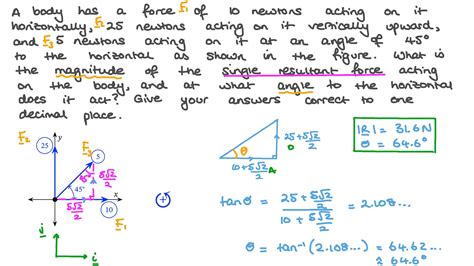 A body has a force F₁ of 10 newtons acting on it
horizontally, F₂ 25 newtons acting on it vertically upward,
and F₃ 5 newtons acting on it at an angle of 45°
to the horizontal as shown in the figure. What is
the magnitude of the single resultant force acting
on the body, and at what angle to the horizontal
does it act? Give your answers correct to one
decimal place.
|R| = 31.6 N
θ = 64.6°
F₂
y
25
F₃
5
45°
45°
5√2/2
5√2/2
x
10
F₁
j
i
+
θ
25 + 5√2/2
O
10 + 5√2/2
A
tanθ = (25 + 5√2/2)/(10 + 5√2/2) = 2.108...
θ = tan⁻¹(2.108...) = 64.62...
≈ 64.6°